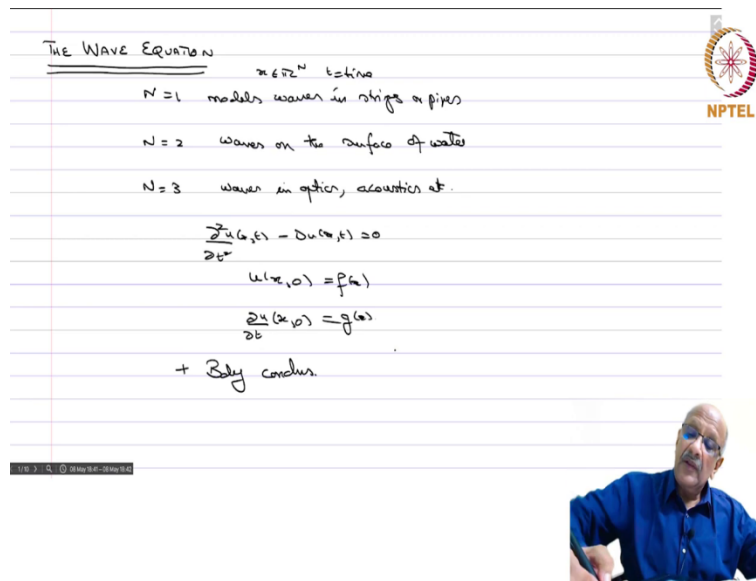 THE WAVE EQUATION
x ∈ ℝ^N t = time
N = 1 models waves in strings or pipes
N = 2 waves on the surface of water
N = 3 waves in optics, acoustics etc.
∂²u/∂t² (x,t) − Δu(x,t) = 0
u(x,0) = f(x)
∂u/∂t (x,0) = g(x)
+ Bdy condns.
NPTEL
1/10 08 May 18:41–08 May 18:42